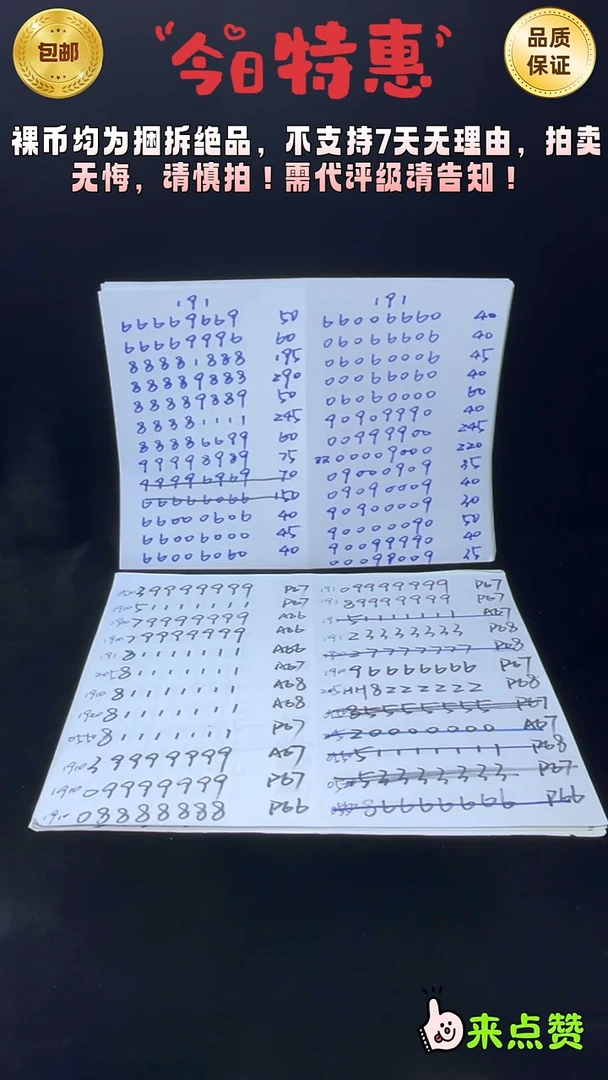 包邮
今日特惠
品质
保证
裸币均为捆拆绝品，不支持7天无理由，拍卖
无悔，请慎拍！需代评级请告知！
191
66669669 50
66669996 60
88881888 185
88889883 290
88889889 50
88881111 245
88886699 60
99998989 75
99996969 70
66666066 150
66000606 40
66006000 45
66006060 40
191
66006660 40
06066606 40
06060006 45
00066060 40
06060000 60
90909990 40
00999900 245
00009000 220
09000909 35
09090009 40
90900000 30
90000090 50
90099990 40
00099009 35
39999999 P67
1980 51111111 P67
79999999 A66
79999999 A66
191 81111111 A66
205 81111111 A67
1910 81111111 A68
1920 81111111 A68
0550 81111111 P67
1910 39999999 A67
1910 09999999 P67
1910 08888888 P66
191 09999999 P67
191 89999999 P67
191 51111111 A67
191 23333333 P68
27777777 P68
1910 96666666 P67
205 HH8222222 P68
85555555 P67
20000000 A67
51111111 P68
53333333 P67
86666666 P66
来点赞